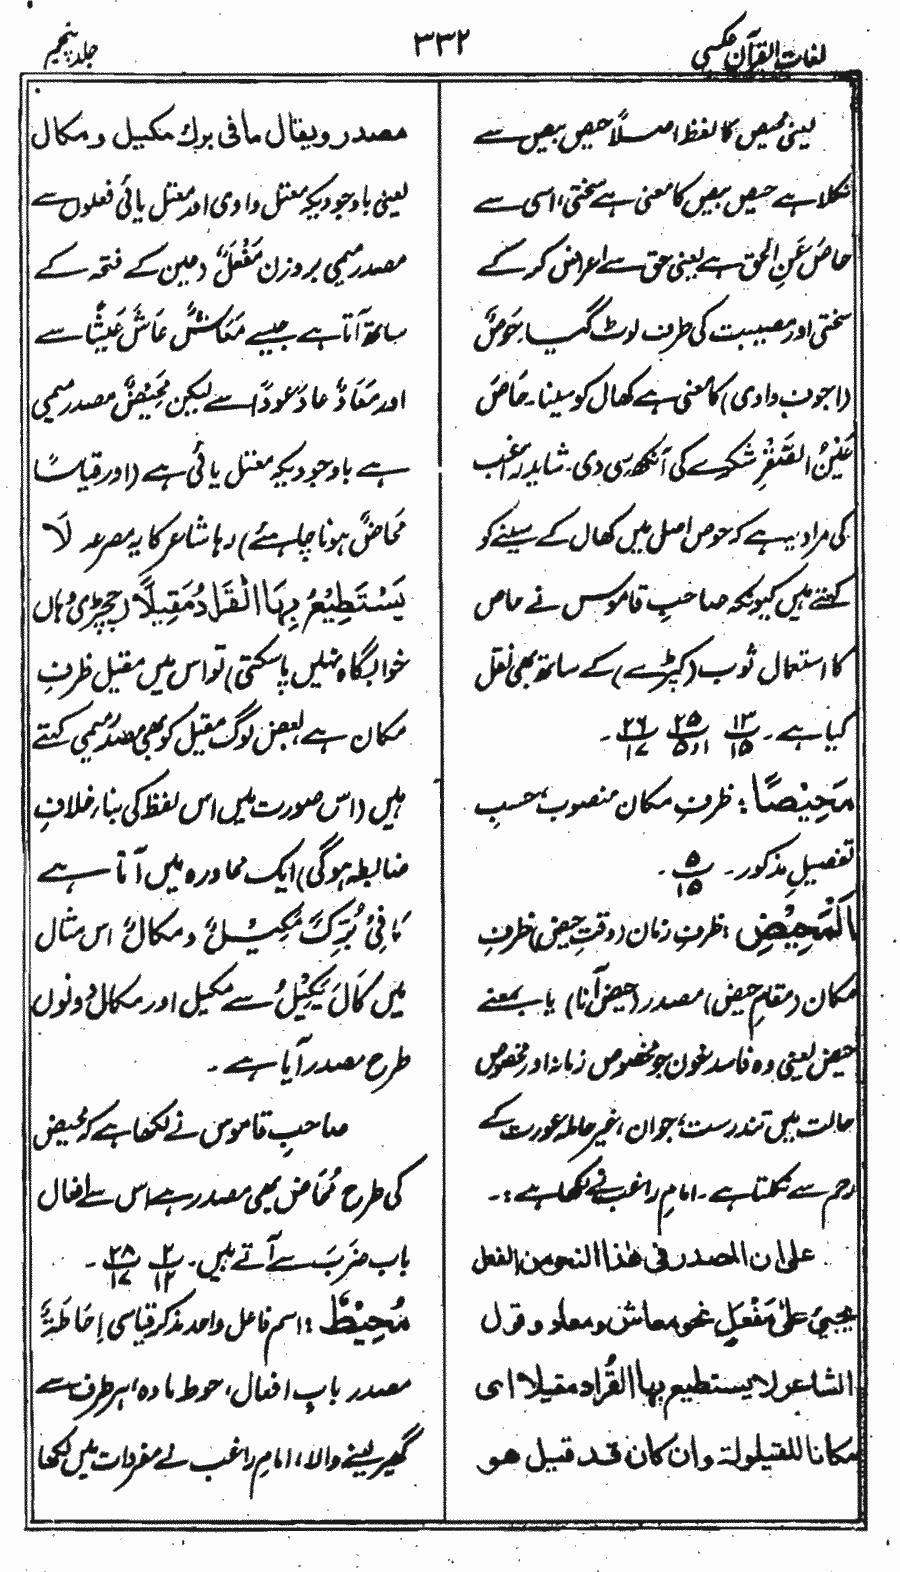 لغات القرآن عکسی
۳۳۲
جلد پنجم
یعنی محیص کا لفظ اصلاً حیص بیص سے
نکلا ہے حیص بیص کا معنی ہے سختی، اسی سے
حاصَ عَنِ الحق ہے یعنی حق سے اعراض کر کے
سختی اور مصیبت کی طرف لوٹ گیا۔ حَوصٌ
(اجوف وادی) کا معنی ہے کھال کو سینا۔ حَاصَ
عَیْنُ الصَّقْرِ شکرے کی آنکھ سی دی۔ شاید راغب
کی مراد یہ ہے کہ حوص اصل میں کھال کے سینے کو
کہتے ہیں کیونکہ صاحبِ قاموس نے حاص
کا استعمال ثوب (کپڑے) کے ساتھ بھی نقل
کیا ہے۔ ۱۳/۱۵ ۲۵/۵ اور ۲۶/۱۷ ۔
مَحِیْصًا: ظرفِ مکان منصوب، حسبِ
تفصیلِ مذکور۔ ۵/۱۵ ۔
اَلْمَحِیْضِ: ظرفِ زمان (وقتِ حیض) ظرفِ
مکان (مقامِ حیض) مصدر (حیض آنا) یا بمعنے
حیض یعنی وہ فاسد خون جو مخصوص زمانہ اور مخصوص
حالت میں تندرست، جوان، غیر حاملہ عورت کے
رحم سے نکلتا ہے۔ امامِ راغب نے لکھا ہے:۔
علی ان المصدر فی ھٰذا النحو من الفعل
یجیئُ علیٰ مَفْعَلٍ نحو معاش و معاد و قول
الشاعر لا یستطیع بھا القُراد مقیلا ای
مکانا للقیلولۃ وان کان قد قیل ھو
مصدر و یقال ما فی برك مکیل و مکال
یعنی باوجودیکہ معتل وادی اور معتل یائی فعلوں سے
مصدر میمی بروزن مَفْعَلٌ (میمن کے فتحہ کے
ساتھ آتا ہے جیسے مَعَاشٌ عَاشَ عَیْشًا سے
اور مَعَادٌ عادَ عَودًا سے لیکن مَحِیْضٌ مصدر میمی
ہے باوجودیکہ معتل یائی ہے (اور قیاسًا
مَحَاضٌ ہونا چاہئے) رہا شاعر کا یہ مصرعہ لَا
یَسْتَطِیْعُ بِہَا الْقُرَادُ مَقِیلًا (چچڑی وہاں
خوابگاہ نہیں پا سکتی) تو اس میں مقیل ظرفِ
مکان ہے بعض لوگ مقیل کو بھی مصدر میمی کہتے
ہیں (اس صورت میں اس لفظ کی بنا برخلافِ
ضابطہ ہوگی) ایک محاورہ میں آتا ہے
مَا فِیْ بُرِّكَ مَکِیْلٌ و مکالٌ اس مثال
میں کَالَ یَکِیْلُ سے مکیل اور مکال دونوں
طرح مصدر آیا ہے۔
صاحبِ قاموس نے لکھا ہے کہ محیض
کی طرح مَحَاض بھی مصدر ہے اس سے افعال
باب ضَرَبَ سے آتے ہیں۔ ۲/۱۲ ۲۸/۱۷ ۔
مُحِیْطٌ: اسم فاعل واحد مذکر قیاسی اِحَاطَۃٌ
مصدر بابِ افعال، حوط مادہ، ہر طرف سے
گھیر لینے والا، امامِ راغب نے مفردات میں لکھا